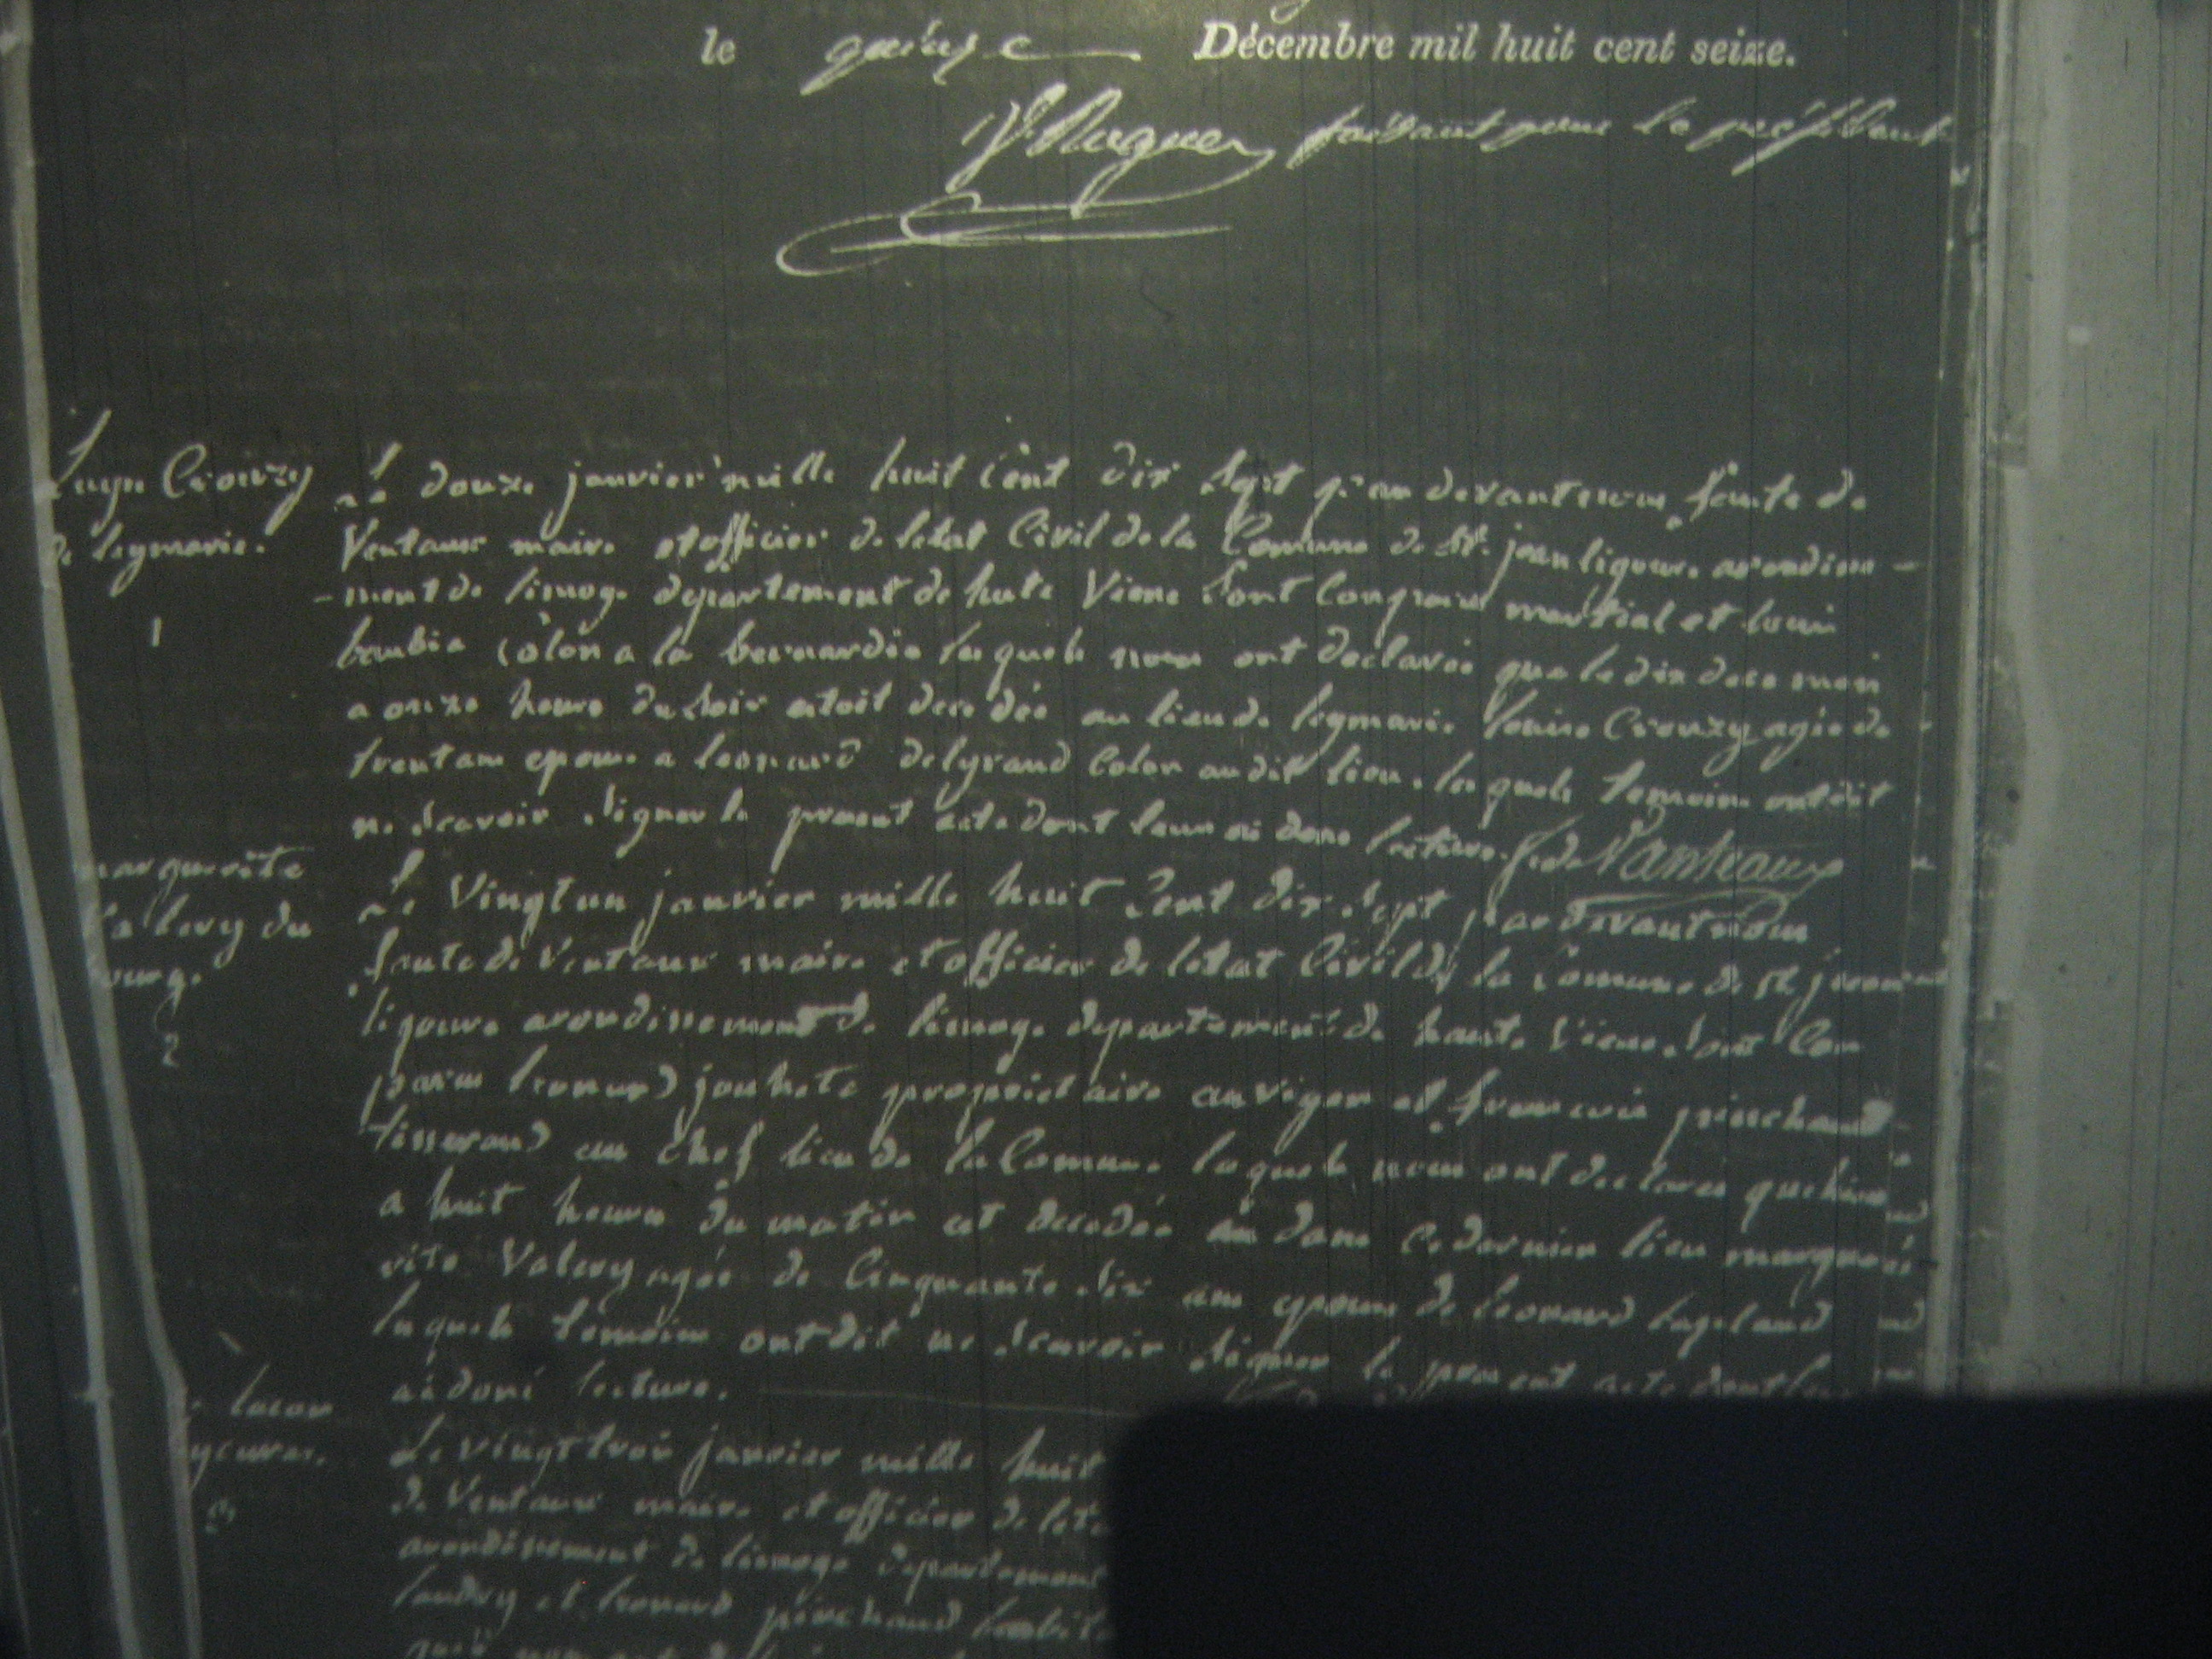 le quinze Décembre mil huit cent seize.
faisant pour le président
Crouzy
de legmarie.
1
Le douze janvier mille huit Cent dix Sept par devant nous faute de
Ventaux maire et officier de letat Civil de la Comune de St. jean ligoure arondise-
-ment de limoge departement de hute Viene Sont Comparus martial et louis
baubia Colon a la bernardie les quels nous ont declarés que le dix du mois
a onze heure du Soir etoit decedée au lieu de legmarie Crouzy agée de
trent ans epouse a leonard delgrand Colon audit lieu. les quels temoins ont dit
ne Scavoir Signer le present acte dont leur ai doné lecture.
marguerite
Valery du
bourg.
2
Le Vingt un janvier mille huit Cent dix Sept par devant nous
faute de Ventaux maire et officier de letat Civil de la Comune de St jean
ligoure arondissement de limoge departement de haute Viene. Sont Com
parus leonard jouhete proprietaire au vigen et francois pinchaud
tisserand au Chef lieu de la Comune lesquels nous ont declares que hier
a huit heures du matin est decedée dans ce dernier lieu margue
rite Valery agée de Cinquante Six ans epouse de leonard
lesquels temoins ont dit ne Scavoir Signer le present acte dont leur
ai doné lecture.
lacour
3
Le Vingt trois janvier mille huit
de Ventaux maire et officier de leta
arondissement de limoge departement
et leonard pinchaud